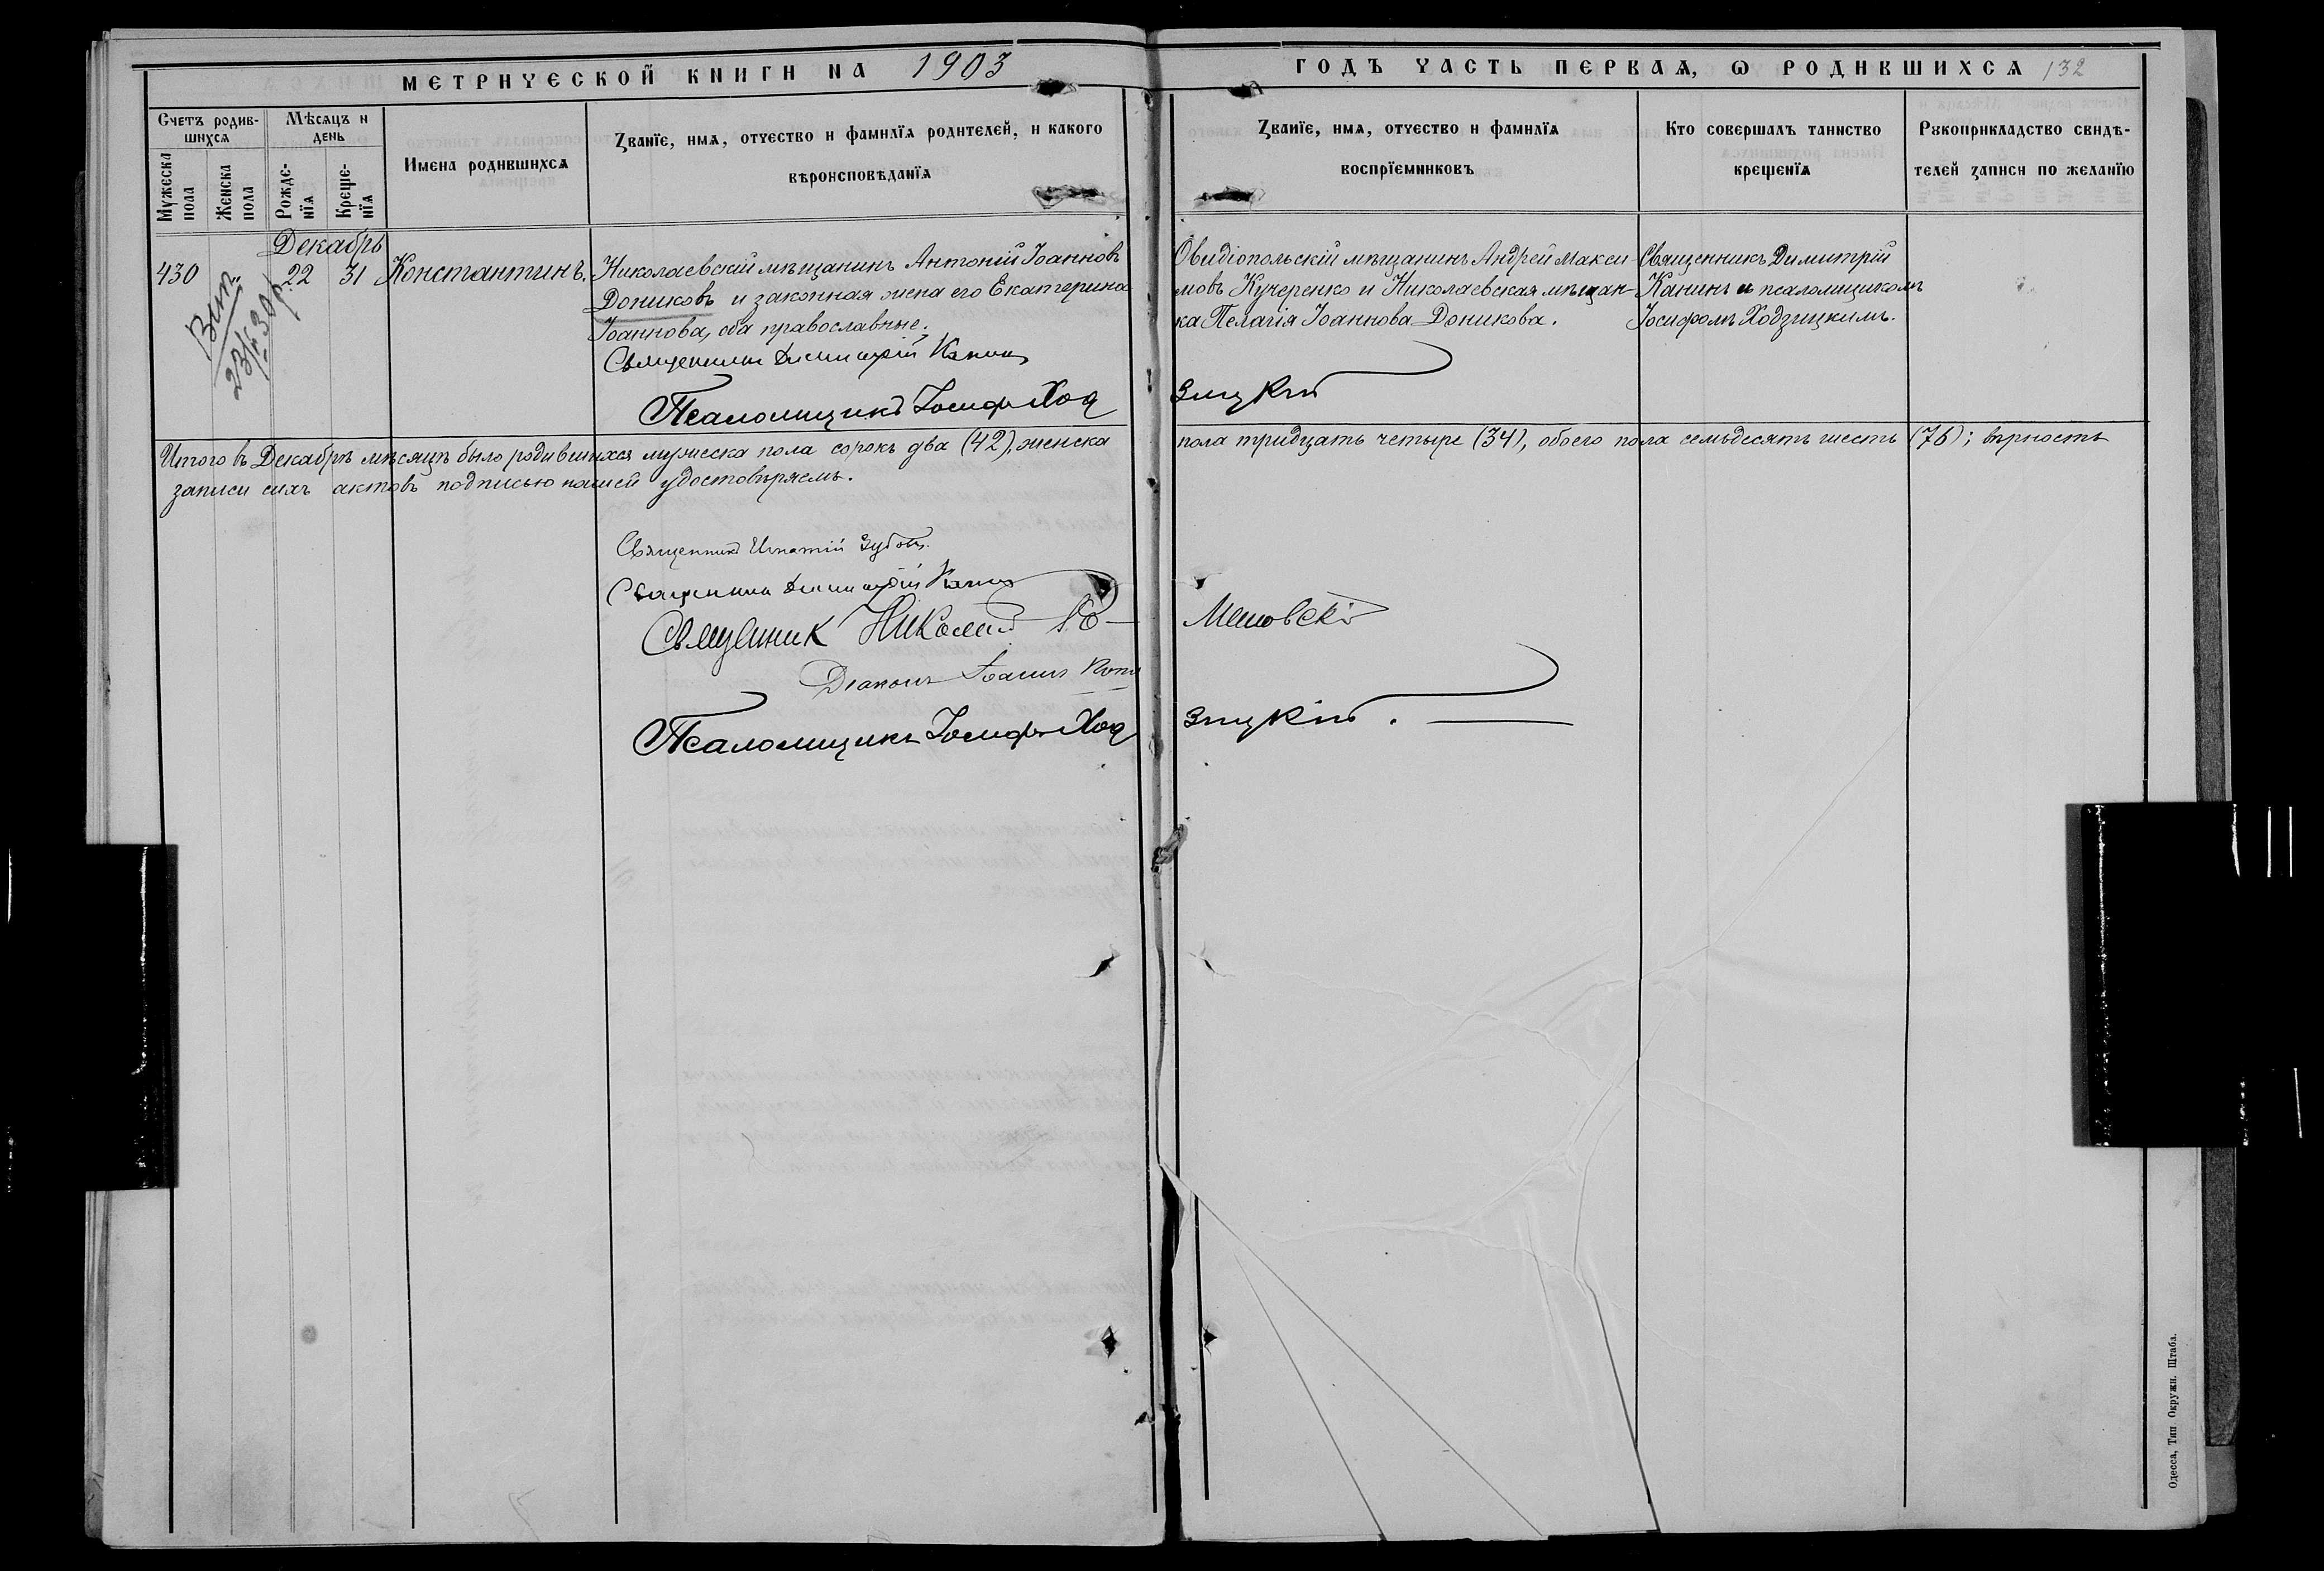 МЕТРИЧЕСКОЙ КНИГИ НА 1903
ГОДЪ ЧАСТЬ ПЕРВАѦ, Ѡ РОДИВШИХСѦ 132
Счетъ родив-
шихсѧ
Мужеска
пола
Женска
пола
Мѣсѧцъ и
день
Рожде-
нїѧ
Креще-
нїѧ
Имена родившихсѧ
Званїе, имѧ, отчество и фамилїѧ родителей, и какого
вѣроисповѣданїѧ
Званїе, имѧ, отчество и фамилїѧ
воспрїемниковъ
Кто совершалъ таинство
крещенїѧ
Рꙋкоприкладство свидѣ-
телей записи по желанїю
Декабрь
430
22
31
Константинъ.
Николаевскій мѣщанинъ Антоній Іоанновъ
Дониковъ и законная жена его Екатерина
Іоаннова, оба православные.
Священникъ Димитрій Канинъ
Псаломщикъ Іосифъ Ход
зицкій
Овидіопольскій мѣщанинъ Андрей Макси-
мовъ Кучеренко и Николаевская мѣщан-
ка Пелагія Іоаннова Доникова.
Священникъ Димитрій
Канинъ и псаломщикомъ
Іосифомъ Ходзицкимъ.
Итого въ Декабрѣ мѣсяцѣ было родившихся мужеска пола сорокъ два (42), женска
пола тридцать четыре (34), обоего пола семьдесятъ шесть (76); вѣрность
записи сихъ актовъ подписью нашей удостовѣряемъ.
Священникъ Игнатій
Священникъ Димитрій Канинъ
Священник Николай
Діаконъ Іоаннъ
Псаломщикъ Іосифъ Ход
зицкій.
Одесса, Тип. Окружн. Штаба.